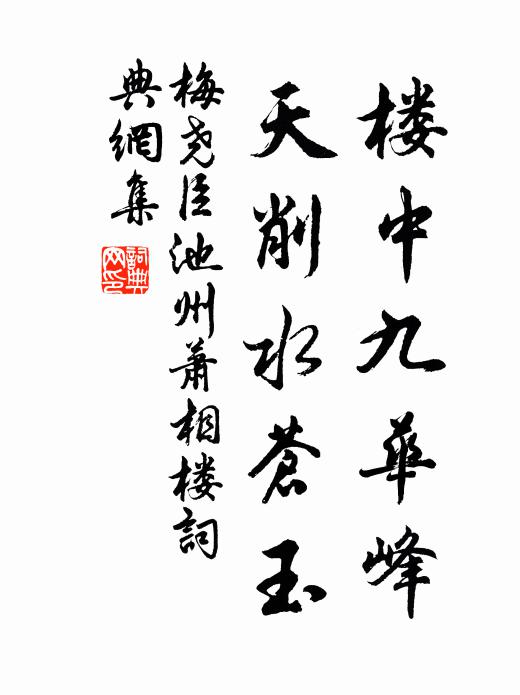 楼中九華峰
天削水蒼玉
梅尧臣池州萧相楼詞
典網集
詞典
网印